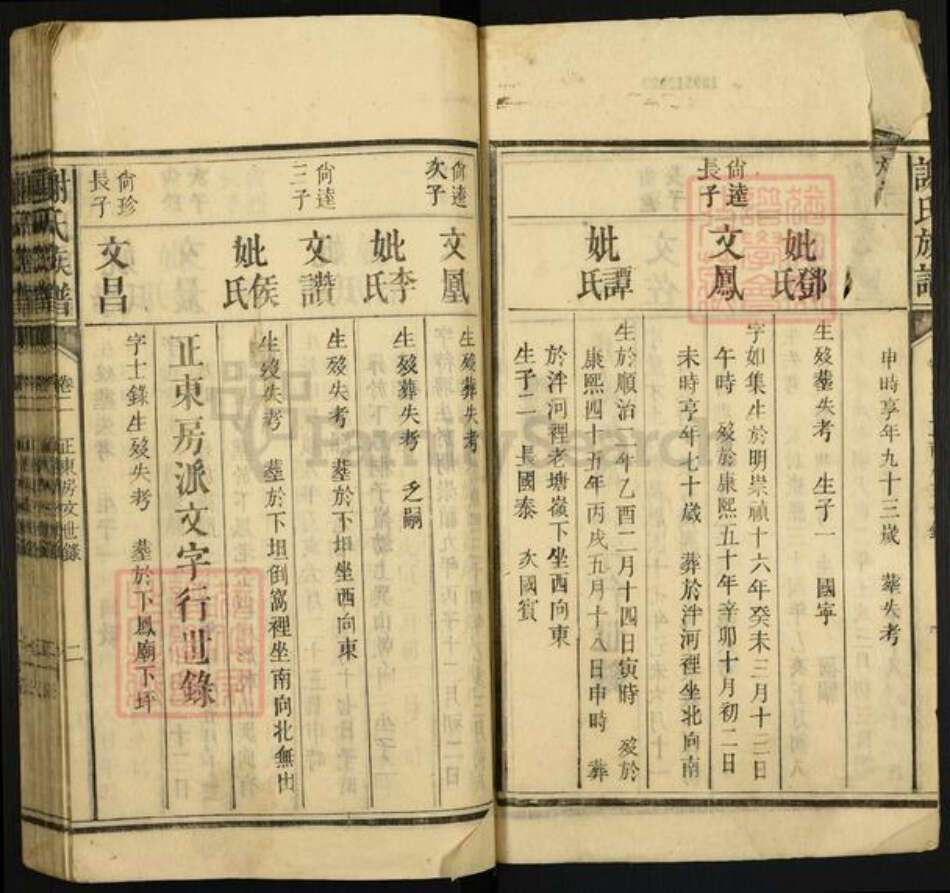 謝氏族譜
申時享年九十三歲 葬失考
妣鄧氏
生歿葬失考 生子一 國寧
尙達長子
文鳳
字如集生於明崇禎十六年癸未三月十三日
午時 歿於康熙五十年辛卯十月初二日
未時享年七十歲 葬於泮河裡坐北向南
妣譚氏
生於順治二年乙酉二月十四日寅時 歿於
康熙四十五年丙戌五月十八日申時 葬
於泮河裡老塘嶺下坐西向東
生子二 長國泰 次國賓
尙達次子
文凰
生歿葬失考
妣李氏
生歿葬失考 乏嗣
尙達三子
文讚
生歿失考 墓於下坦坐西向東
妣侯氏
生歿失考 墓於下坦倒窩裡坐南向北無出
正東房派文字行世錄
尙珍長子
文昌
字士錄生歿失考 墓於下鳳廟下坪
謝氏族譜
卷二
正東房文世錄
二
FamilySearch